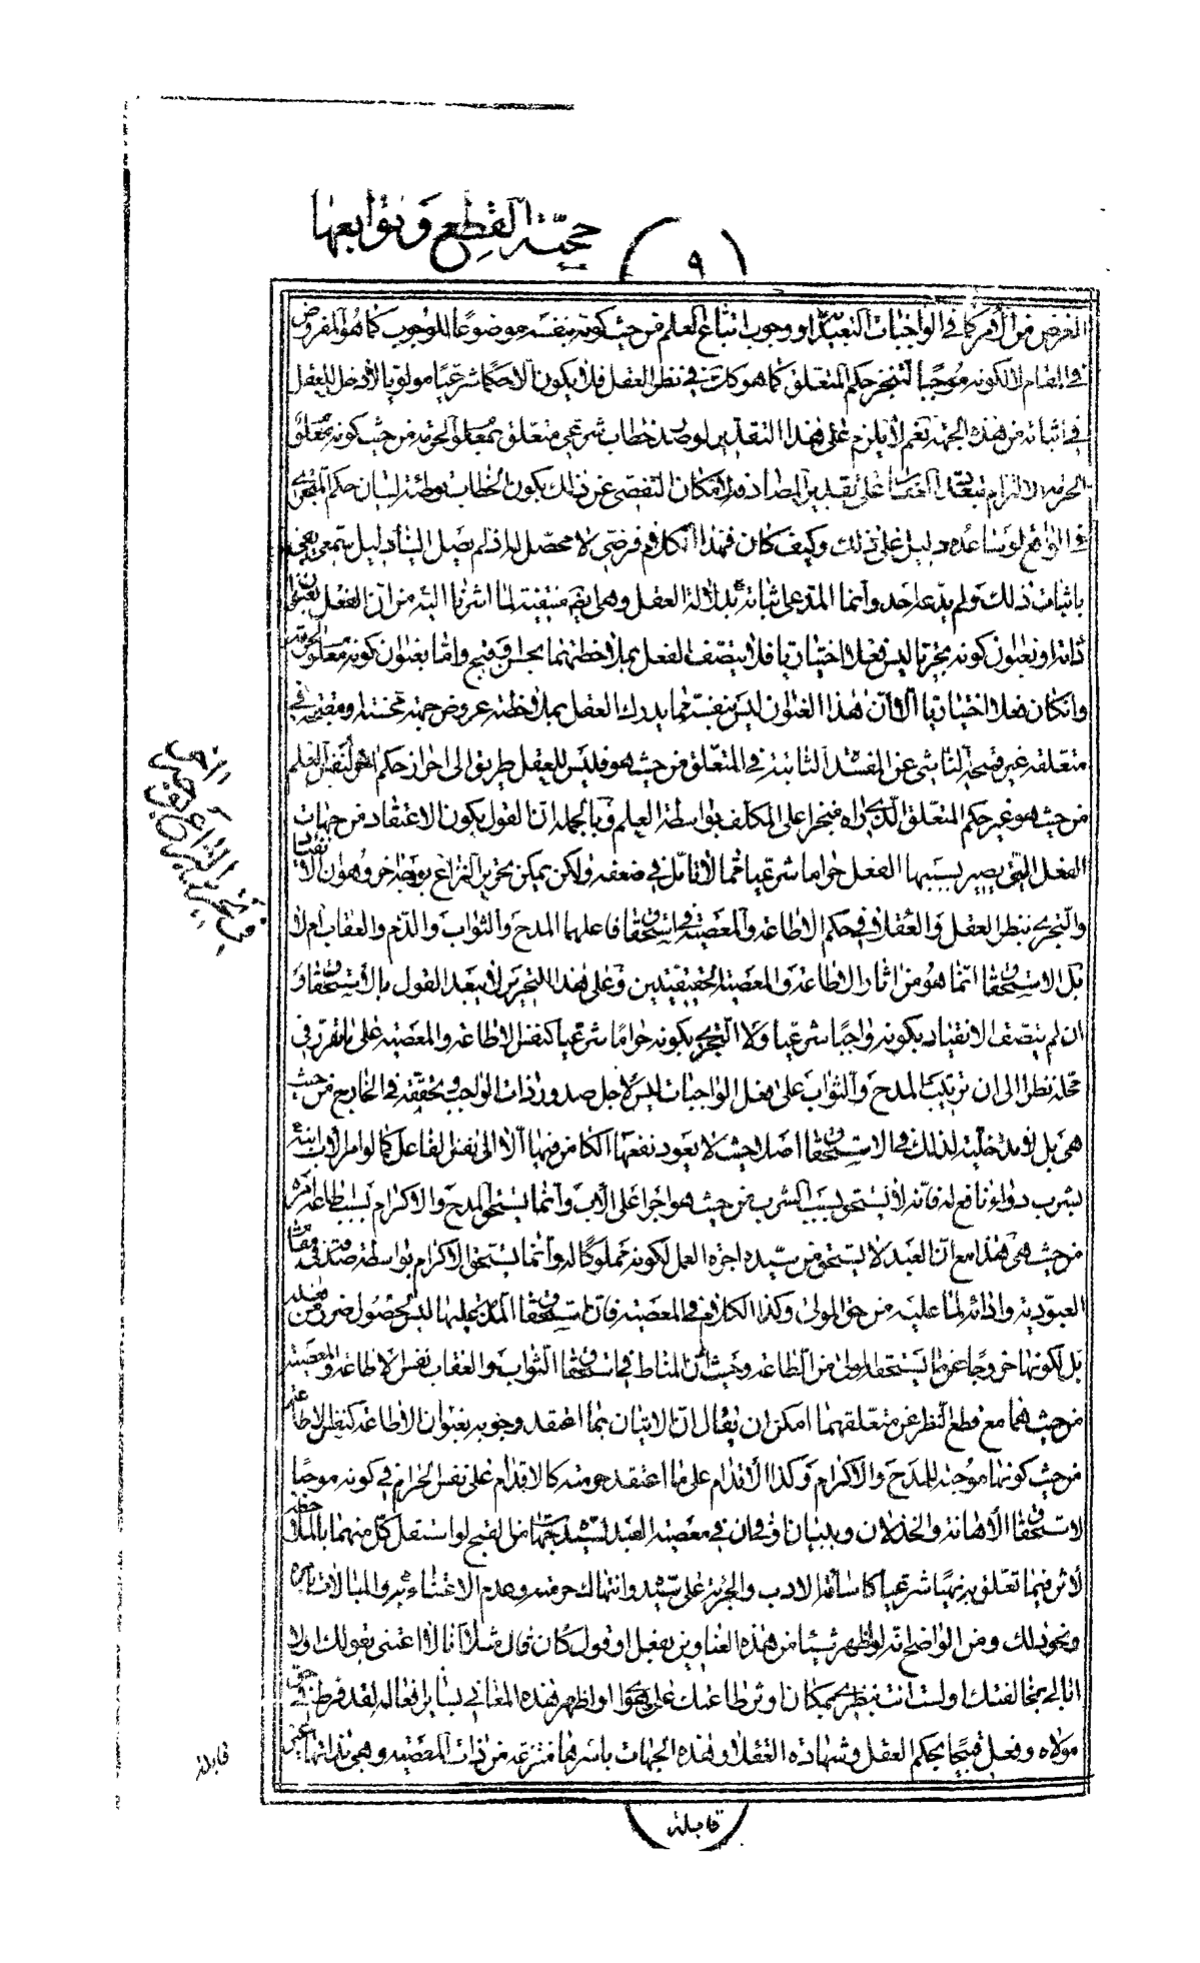 حجيّة القطع وتوابعها
(٩)
الغرض من الأمر كما في الواجبات التعبّديّة او وجوب اتباع العلم من حيث كونه بنفسه موضوعًا للوجوب كما هو المفروض
في المقام لا لكونه موجبًا لتنجز حكم المتعلق كما هو كذلك في نظر العقل فلا يكون الا حكما شرعيّا مولويا لا دخل للعقل
في اثباته من هذه الجهة نعم لا يلزم على هذا التقدير لو صدر خطاب شرعي متعلق بمعلوم الحرمة من حيث كونه معلوم
الحرمة الالتزام بتعدد العقاب على تقدير المصادفة لامكان التفصي عن ذلك بكون الخطاب توطئة لبيان حكم المتجري
في الواقع لو ساعده دليل على ذلك وكيف كان فهذا الكلام فرضي لا محصل له اذ لم يصل الينا دليل سمعي يفي
باثبات ذلك ولم يدعه احد وانما المدعى اثباته بدلالة العقل وهي بقسميه منتفية لما اشرنا اليه من ان الفعل بعنوان
ذاته او بعنوان كونه تجريا ليس فعلا اختياريا فلا يتصف الفعل بملاحظتهما بحسن وقبح واما بعنوان كونه معلوم الحرمة
وان كان فعلا اختياريا الا ان هذا العنوان ليس بنفسه مما يدرك العقل بملاحظته عروض جهة محسنة ومقبحة في
متعلقه غير قبحه الناشئ عن المفسدة الثابتة في المتعلق من حيث هو فليس للعقل طريق الى احراز حكم اخر لنفس العلم
من حيث هو غير حكم المتعلق الذي يراه منجزا على المكلف بواسطة العلم وبالجملة ان القول بكون الاعتقاد من جهات
الفعل التي يصير بسببها الفعل حراما شرعيا مما لا تامل في ضعفه ولكن يمكن تحرير النزاع بوجه اخر وهو ان الانقياد
والتجري بنظر العقل والعقلاء في حكم الاطاعة والمعصية في استحقاق فاعلهما المدح والثواب والذم والعقاب ام لا
بل الاستحقاق انما هو من اثار الاطاعة والمعصية الحقيقيتين وعلى هذا التحرير لا يبعد القول بالاستحقاق و
ان لم يتصف الانقياد بكونه واجبًا شرعيا ولا التجري بكونه حرامًا شرعيا كنفس الاطاعة والمعصية على ما تقرر في
محله نظرا الى ان ترتب المدح والثواب على فعل الواجبات ليس لاجل صدور ذات الواجب وتحققه في الخارج من حيث
هي بل لا مدخلية لذلك في الاستحقاق اصلا حيث لا يعود نفعها الكامن فيها الا الى نفس الفاعل كما لو امر الاب ابنه
بشرب دواء نافع له فانه لا يستحق بسبب الشرب من حيث هو اجرا على الاب وانما يستحق المدح والاكرام بسبب اطاعة امره
من حيث هي هذا مع ان العبد لا يستحق من سيده اجرة العمل لكونه مملوكًا له وانما يستحق الاكرام بواسطة صدقه في مقام
العبودية وادائه لما عليه من حق المولى وكذا الكلام في المعصية فان استحقاق المذمة عليها ليس لحصول ضرر من فعله
بل لكونها خروجًا عن ما يستحقه المولى من الطاعة وحيث ان المناط في استحقاق الثواب والعقاب نفس الاطاعة والمعصية
من حيث هما مع قطع النظر عن متعلقهما امكن ان يقال ان الاتيان بما اعتقد وجوبه بعنوان الاطاعة كنفس الاطاعة
من حيث كونها موجبة للمدح والاكرام وكذا الاقدام على ما اعتقد حرمته كالاقدام على نفس الحرام في كونه موجبًا
لاستحقاق الاهانة والخذلان وبيان اوفى ان في معصية العبد لسيده جهات من القبح لو استقل كل منهما بالملاحظة
لاثر فيما تعلق به نهيًا شرعيا كاسائة الادب والجرئة على سيده وانتهاك حرمته وعدم الاعتناء به والمبالات بامره
ونحو ذلك ومن الواضح انه لو ظهر شيئا من هذه العناوين بفعل او قول كان قال مثلا انا لا اعتنى بقولك ولا
ابالي بمخالفتك او لست انت بنظري بمكان اوثر طاعتك على هوا او اظهر هذه المعاني بساير افعاله لقد فرط في حق
مولاه وفعل قبيحًا بحكم العقل وشهادة العقلاء وهذه الجهات باسرها منتزعة من ذات المعصية وهي بذاتها عين
في تحرير النزاع بوجه اخر
قابلة
قابلة